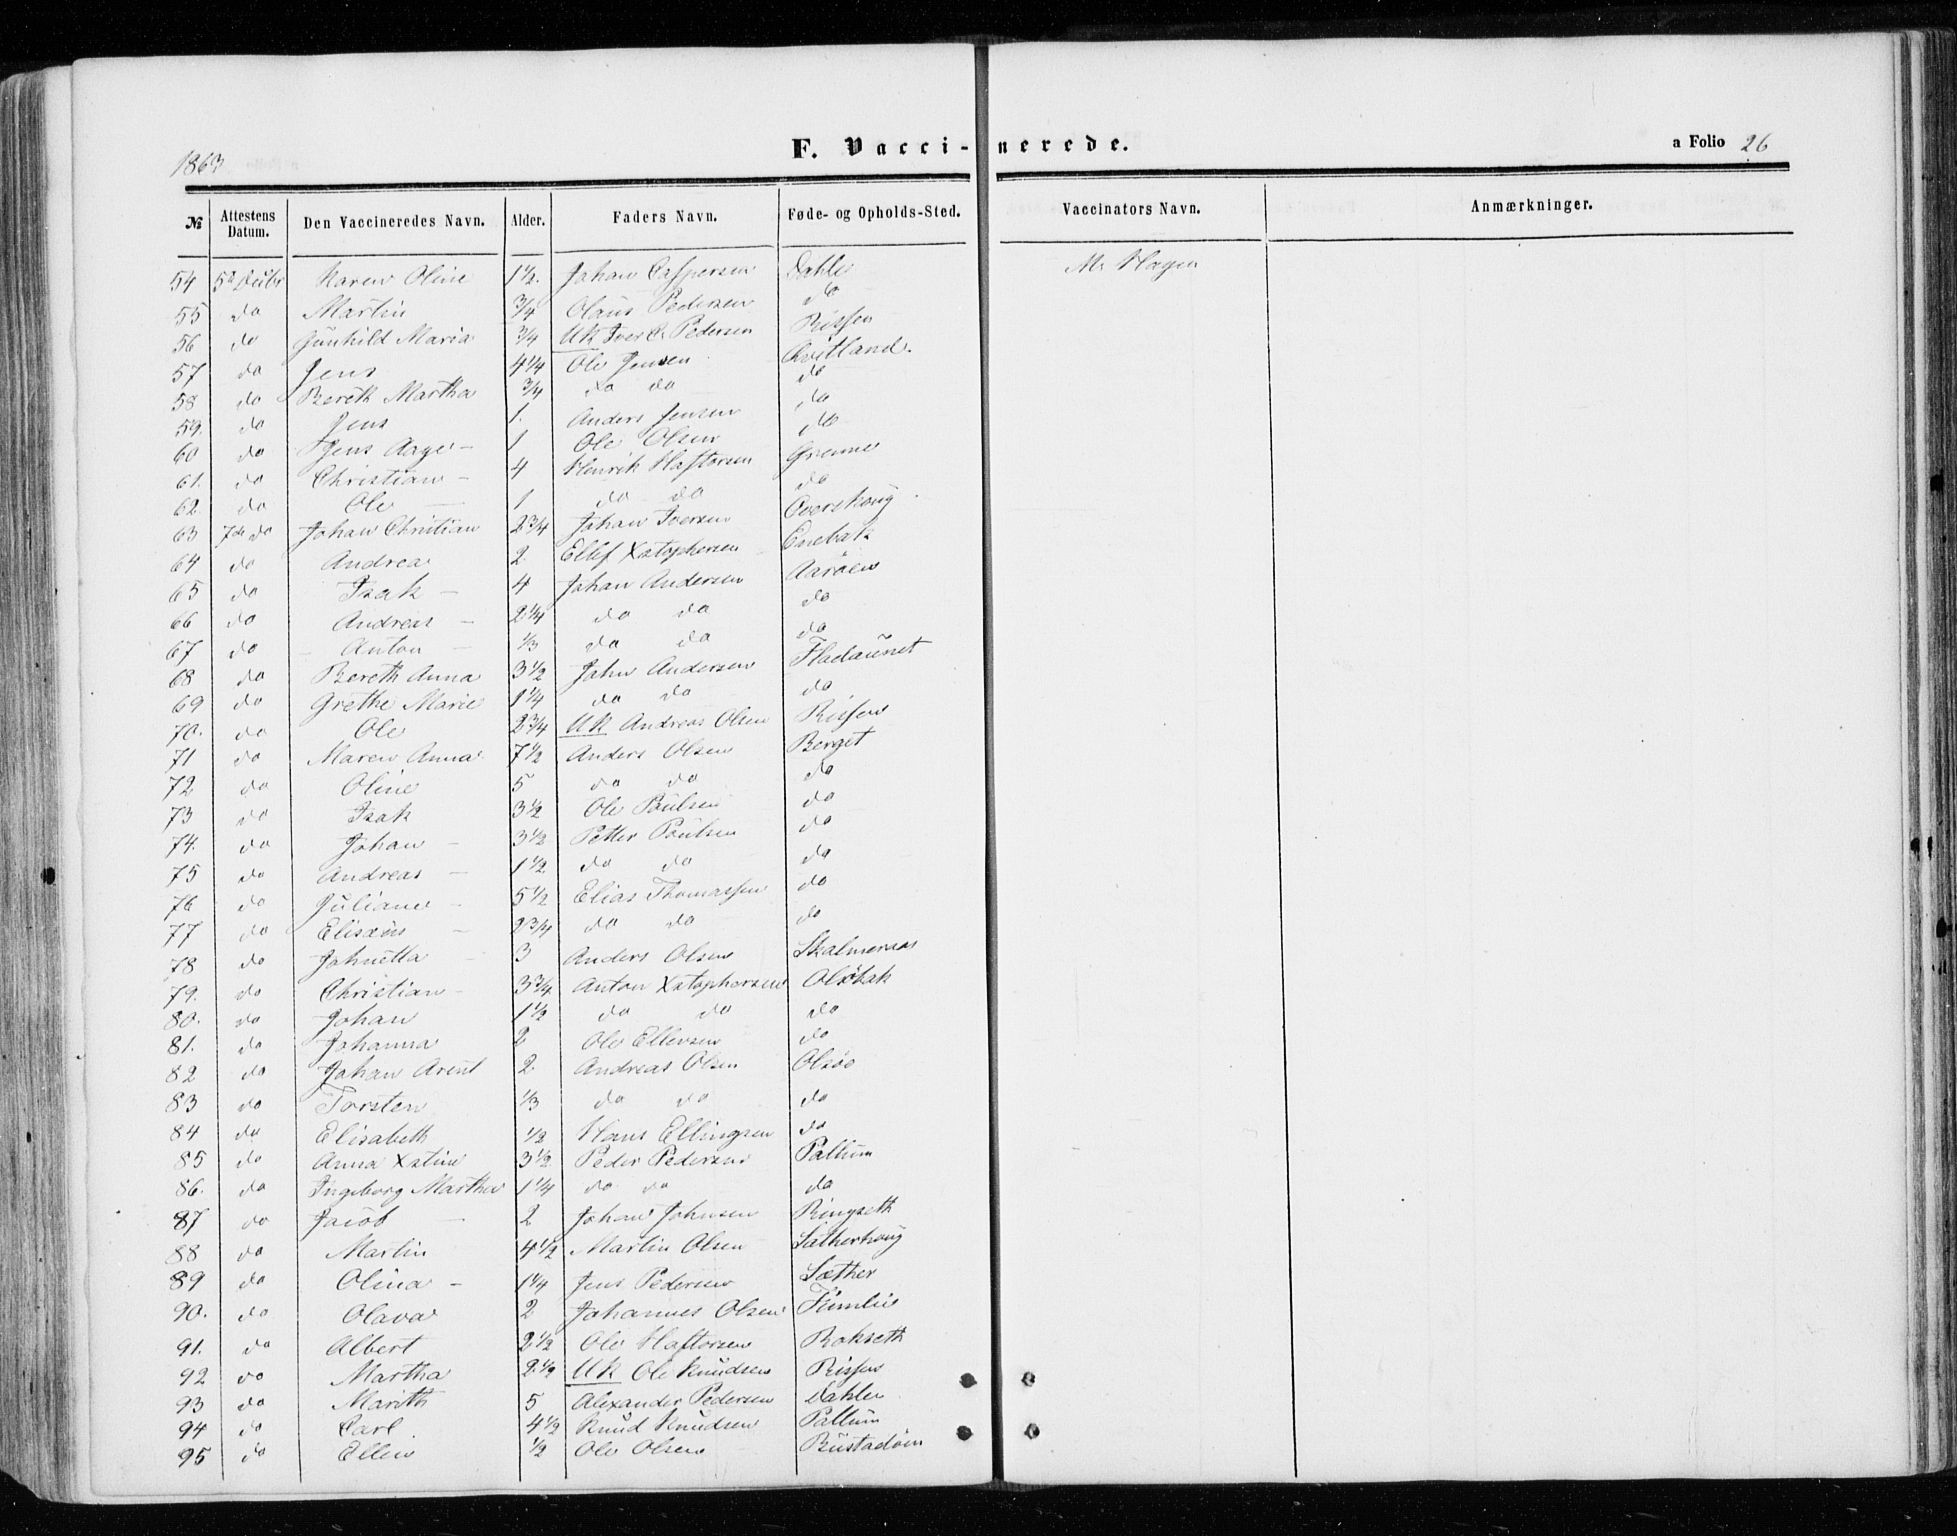 1863 F. Vacci-nerede. a Folio 26
№ Attestens Datum. Den Vaccineredes Navn. Alder. Faders Navn. Føde- og Opholds-Sted. Vaccinators Navn. Anmærkninger.
54 5te Deibr Karen Oline 1½. Johan Caspersen Dahle M. Hagen
55 do Martin ¾ Olaus Pedersen do
56 do Gunhild Maria ¾ UK Iver Pedersen Rissen
57 do Jens 4¼ Ole Jensen Qvitland.
58 do Bereth Martha ¾ do do do
59. do Jens 1. Anders Jensen do
60 do Jens Aage - 1 Ole Olsen do
61. do Christian - 4 Henrik Haftorsen Grenne
62. do Ole 1 do do do
63 7de do Johan Christian 2¾ Johan Iversen Overskoug
64 do Andrea 2. Ellef Xstophersen Enebak
65 do Isak - 4 Johan Andersen Aaröen
66 do Andreas - 2¼ do do do
67 do Anton - ⅓ do do do
68 do Bereth Anna 3½ John Andersen Fladaunet
69 do Grethe Marie 1¼ do do do
70. do Ole 2¾ UK Andreas Olsen Rissen
71 do Maren Anna 7½ Anders Olsen Berget
72 do Oline 5 do do do
73 do Isak 3½ Ole Paulsen do
74. do Johan - 3½ Petter Paulsen do
75 do Andreas - 1½ do do do
76 do Juliane - 5½ Elias Thomassen do
77 do Elisæus - 2¾ do do do
78 do Johnetta - 3 Anders Olsen Skalmeraas
79. do Christian - 3¾ Anton Xstophersen Olsöbak
80. do Johan 1½ do do do
81. do Johanna 2 Ole Ellevsen do
82 do Johan Arent 2. Andreas Olsen Olsöe
83 do Torsten ⅓ do do do
84 do Elisabeth ½ Hans Ellingsen do
85 do Anna Xstine 3½ Peder Pedersen Pallum
86. do Ingeborg Martha 1¼ do do do
87 do Jacob - 2 Johan Johnsen Ringseth
88 do Martin 4½ Martin Olsen Sætherhoug
89 do Olina - 1¼ Jens Pedersen Sæther
90. do Olava 2 Johannes Olsen Fumlie
91. do Albert 2½ Ole Haftorsen Rokseth
92 do Martha 2½ UK Ole Knudsen Rissen
93 do Marith 5 Alexander Pedersen Dahlen
94 do Carl. 4½ Knud Knudsen Pallum
95 do Ellen ½ Ole Olsen Rustadöen